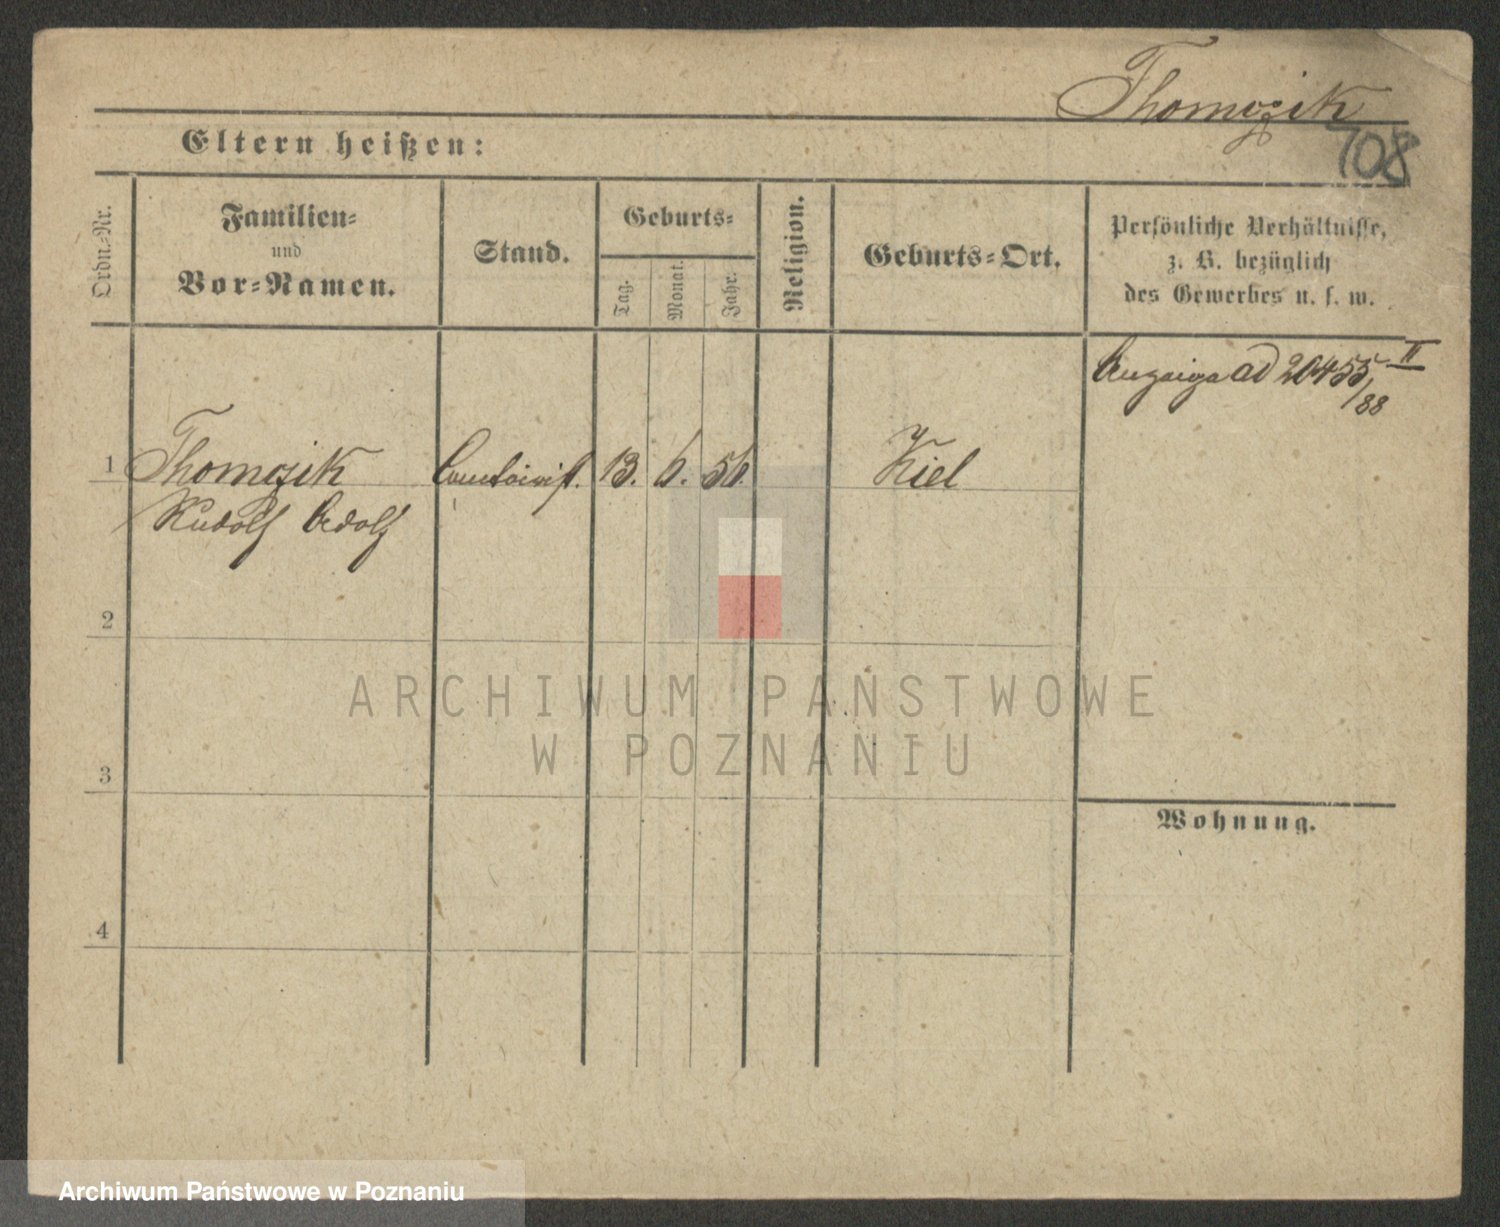 Thomczik
708
Eltern heißen:
Ordn.-Nr.
Familien-
und
Vor-Namen.
Stand.
Geburts-
Tag.
Monat.
Jahr.
Religion.
Geburts-Ort.
Persönliche Verhältnisse,
z. B. bezüglich
des Gewerbes u. s. w.
Anzeige ad 20455/88 II
1 Thomczik Comtoirist. 13. 6. 56. Kiel
Rudolf Adolf
2
3
4
Wohnung.
ARCHIWUM PAŃSTWOWE
W POZNANIU
Archiwum Państwowe w Poznaniu